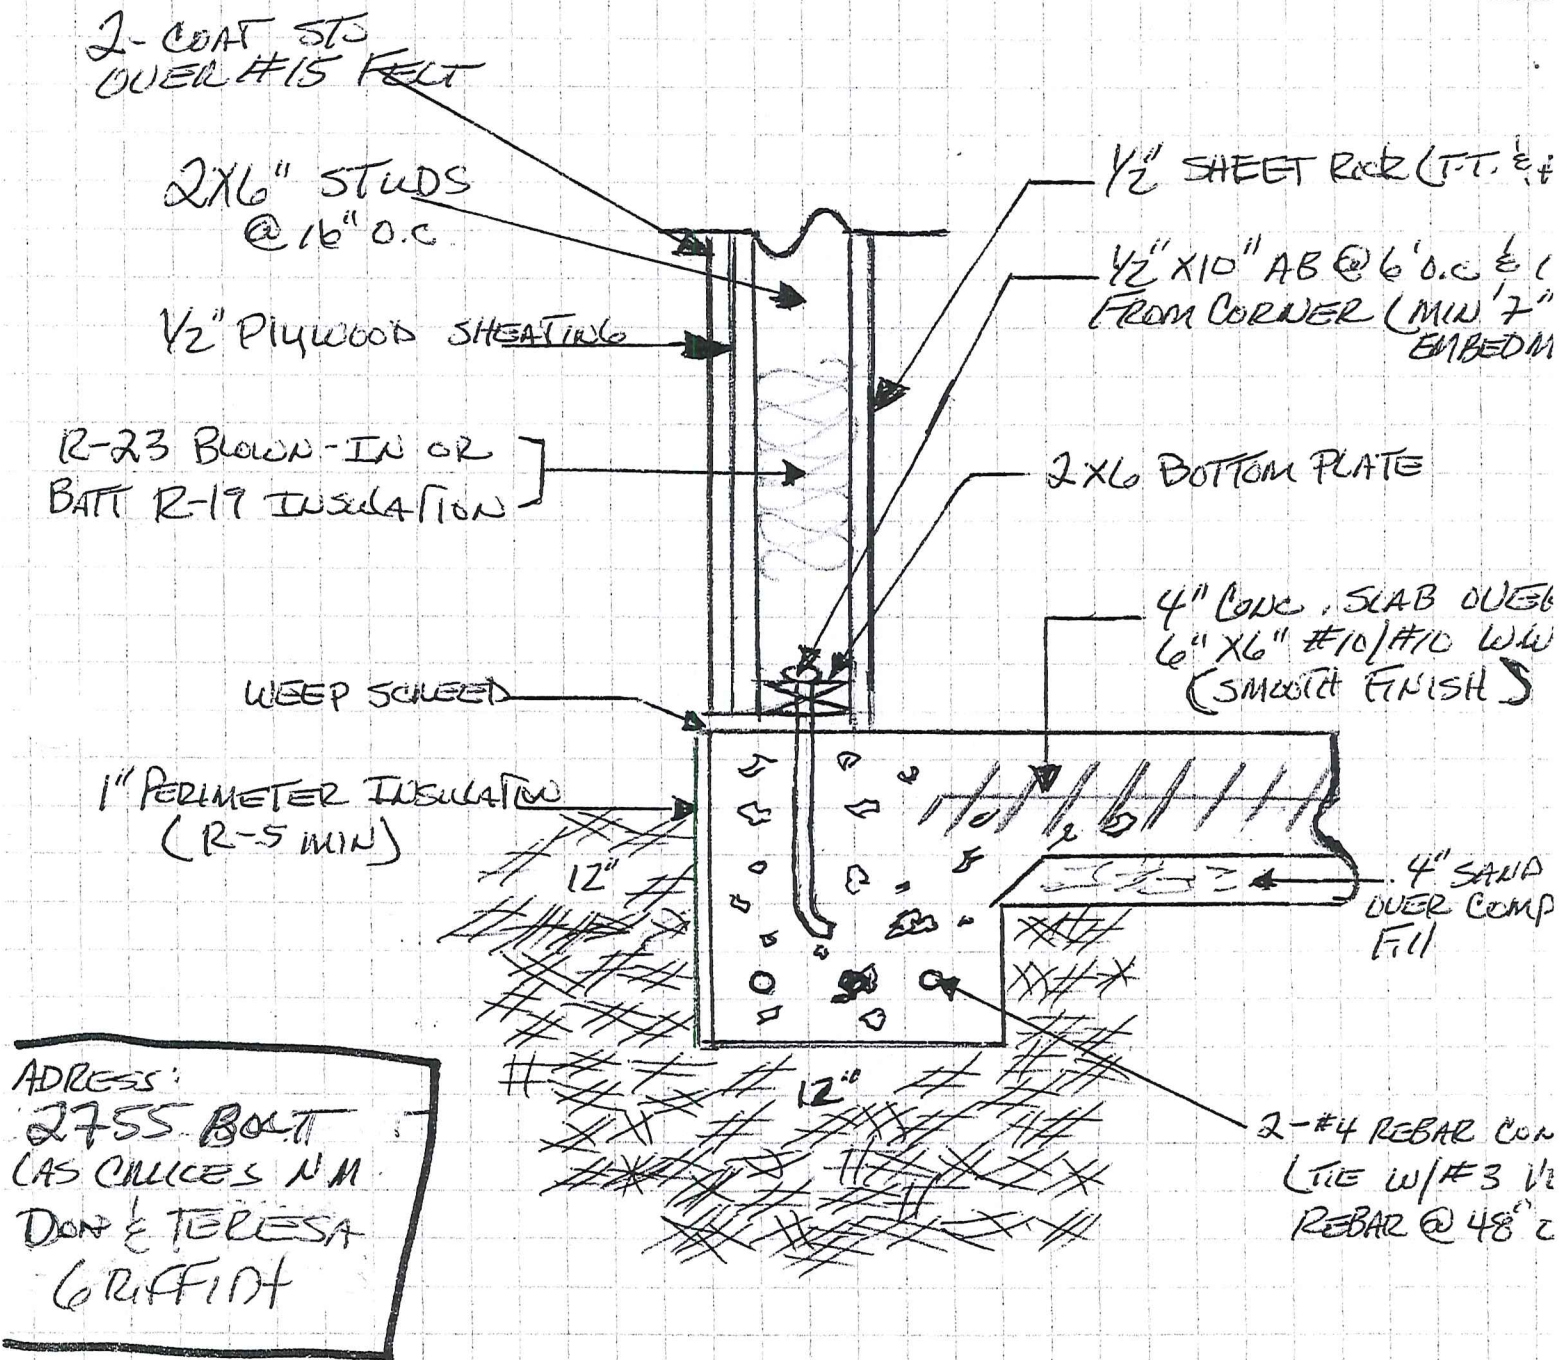 2-COAT STO
OVER #15 FELT
2X6" STUDS
@ 16" O.C
1/2" PLYWOOD SHEATING
R-23 BLOWN-IN OR
BATT R-19 INSULATION
WEEP SCREED
1" PERIMETER INSULATION
(R-5 MIN)
12"
1/2" SHEET ROCK (T.T. &
1/2" X10" AB @ 6' O.C &
FROM CORNER (MIN 7"
EMBEDM
2X6 BOTTOM PLATE
4" CONC. SLAB OVER
6" X6" #10/#10 WW
(SMOOTH FINISH)
4" SAND
OVER COMP
Fill
12"
2-#4 REBAR CON
(TIE W/#3
REBAR @ 48"
ADRESS:
2755 BOLT
LAS CRUCES NM
DON & TERESA
GRIFFIN